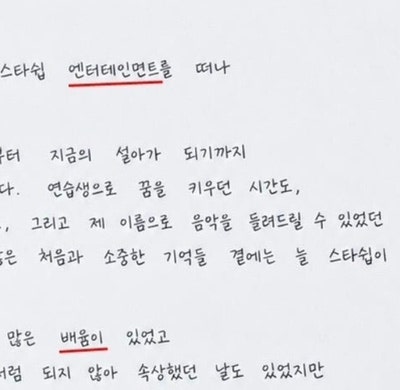 스타쉽 엔터테인먼트를 떠나
지금의 설아가 되기까지
연습생으로 꿈을 키우던 시간도,
그리고 제 이름으로 음악을 들려드릴 수 있었던
처음과 소중한 기억들 곁에는 늘 스타쉽이
많은 배움이 있었고
되지 않아 속상했던 날도 있었지만